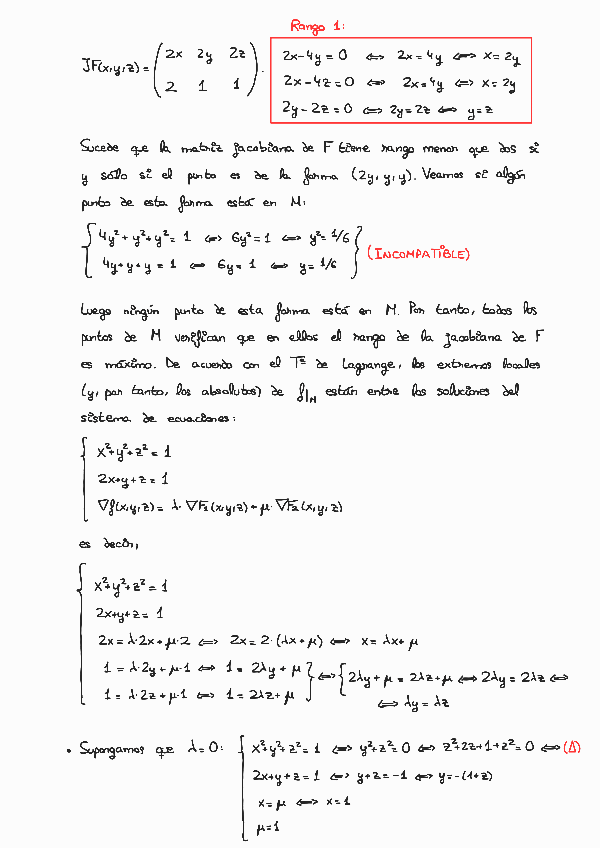 Rango 1:
JF(x,y,z) = ( 2x 2y 2z
2 1 1 ).
2x-4y=0 ⇔ 2x=4y ⇔ x=2y
2x-4z=0 ⇔ 2x=4y ⇔ x=2y
2y-2z=0 ⇔ 2y=2z ⇔ y=z
Sucede que la matriz jacobiana de F tiene rango menor que dos si
y sólo si el punto es de la forma (2y,y,y). Veamos si algún
punto de esta forma está en M:
4y²+y²+y²=1 ⇔ 6y²=1 ⇔ y²=1/6
4y+y+y=1 ⇔ 6y=1 ⇔ y=1/6
(INCOMPATIBLE)
Luego ningún punto de esta forma está en M. Por tanto, todos los
puntos de M verifican que en ellos el rango de la jacobiana de F
es máximo. De acuerdo con el Tª de Lagrange, los extremos locales
(y, por tanto, los absolutos) de f|M están entre las soluciones del
sistema de ecuaciones:
x²+y²+z²=1
2x+y+z=1
∇f(x,y,z)= λ·∇F₁(x,y,z)+μ·∇F₂(x,y,z)
es decir,
x²+y²+z²=1
2x+y+z=1
2x=λ·2x+μ·2 ⇔ 2x=2·(λx+μ) ⇔ x=λx+μ
1=λ·2y+μ·1 ⇔ 1=2λy+μ
1=λ·2z+μ·1 ⇔ 1=2λz+μ
⇔ 2λy+μ=2λz+μ ⇔ 2λy=2λz ⇔
⇔ λy=λz
• Supongamos que λ=0: x²+y²+z²=1 ⇔ y²+z²=0 ⇔ z²+2z+1+z²=0 ⇔ (Δ)
2x+y+z=1 ⇔ y+z=-1 ⇔ y=-(1+z)
x=μ ⇔ x=1
μ=1